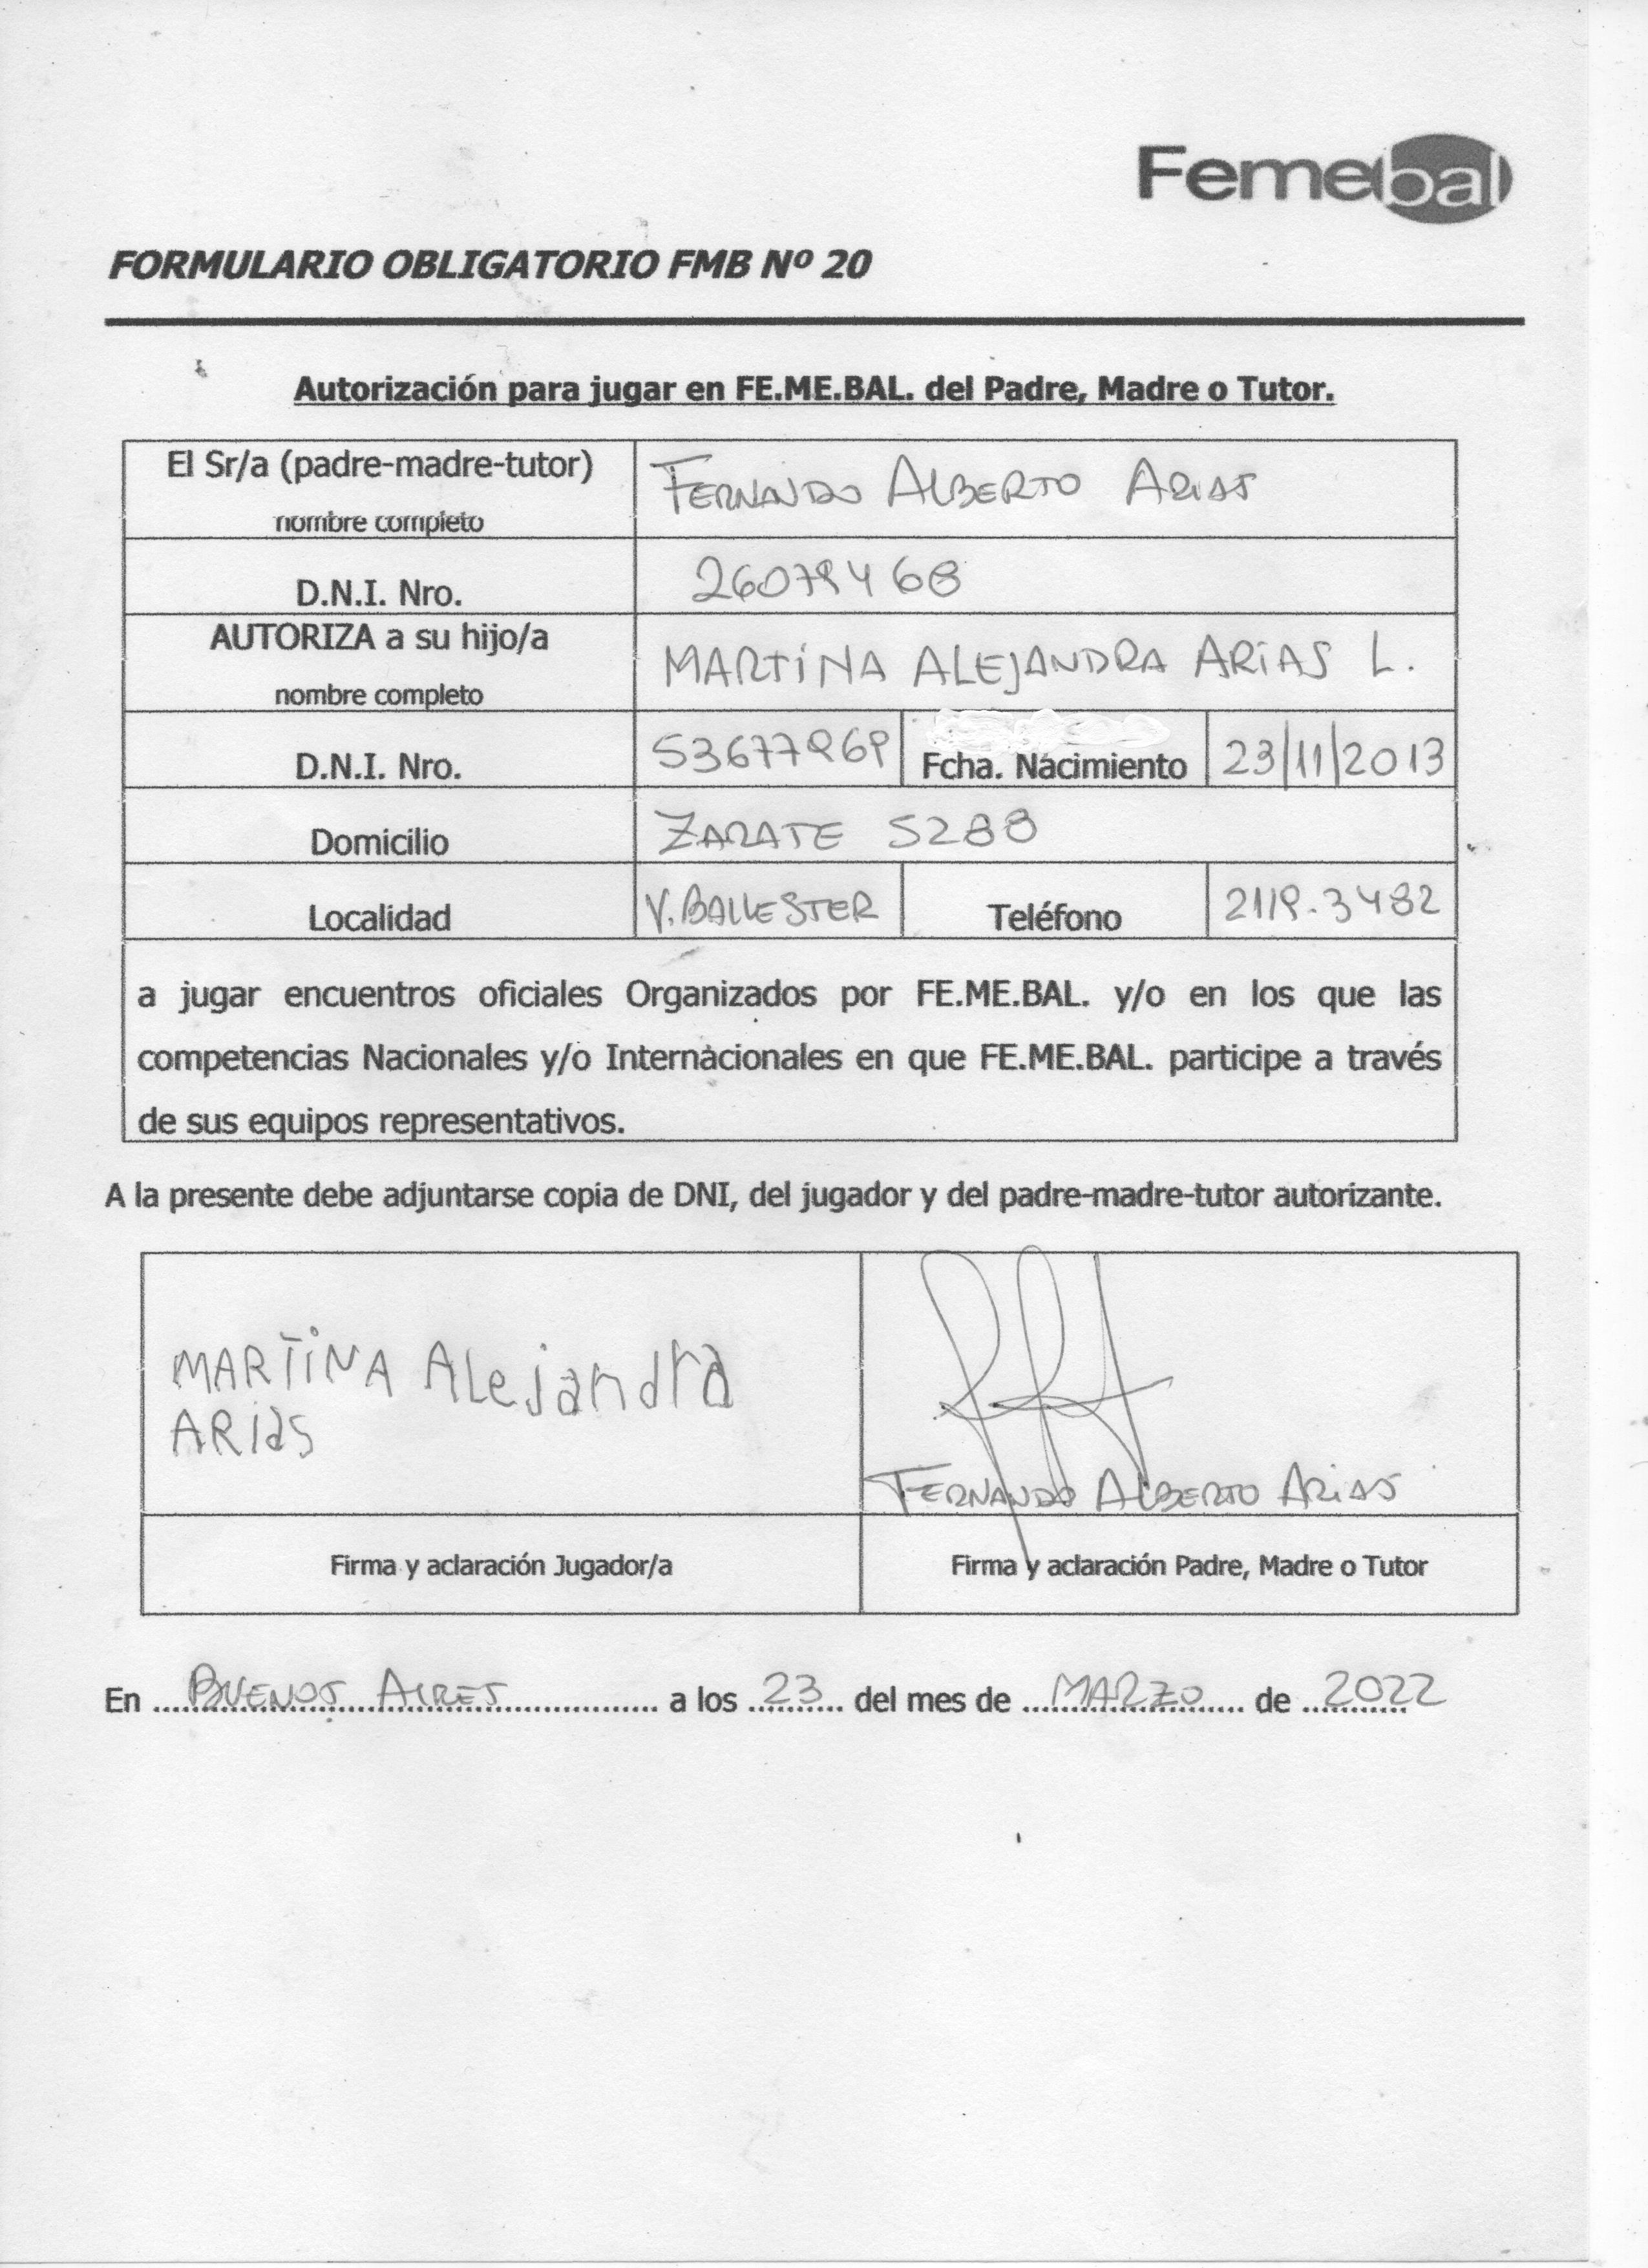 Femebal
FORMULARIO OBLIGATORIO FMB Nº 20
Autorización para jugar en FE.ME.BAL. del Padre, Madre o Tutor.
El Sr/a (padre-madre-tutor)
nombre completo
FERNANDO ALBERTO ARIAS
D.N.I. Nro.
AUTORIZA a su hijo/a
nombre completo
MARTINA ALEJANDRA ARIAS L.
D.N.I. Nro.
Fcha. Nacimiento
23/11/2013
Domicilio
ZARATE 5288
Localidad
V. BALLESTER
Teléfono
2119-3482
a jugar encuentros oficiales Organizados por FE.ME.BAL. y/o en los que las
competencias Nacionales y/o Internacionales en que FE.ME.BAL. participe a través
de sus equipos representativos.
A la presente debe adjuntarse copia de DNI, del jugador y del padre-madre-tutor autorizante.
MARTINA Alejandra
ARias
FERNANDO ALBERTO ARIAS
Firma y aclaración Jugador/a
Firma y aclaración Padre, Madre o Tutor
En BUENOS AIRES a los 23 del mes de MARZO de 2022